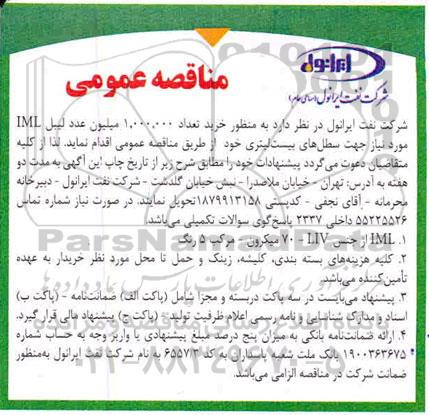 ایرانول
شرکت نفت ایرانول (سهامی عام)
مناقصه عمومی
شرکت نفت ایرانول در نظر دارد به منظور خرید تعداد ۱,۰۰۰,۰۰۰ میلیون عدد لیبل IML
مورد نیاز جهت سطل‌های بیست‌لیتری خود از طریق مناقصه عمومی اقدام نماید. لذا از کلیه
متقاضیان دعوت می‌گردد پیشنهادات خود را مطابق شرح زیر از تاریخ چاپ این آگهی به مدت دو
هفته به آدرس: تهران - خیابان ملاصدرا - نبش خیابان گلدشت - شرکت نفت ایرانول - دبیرخانه
محرمانه - آقای نجفی - کدپستی ۱۸۷۹۹۱۳۱۵۸ تحویل نمایند. در صورت نیاز شماره تماس
۵۵۲۲۵۵۲۶ داخلی ۲۳۳۷ پاسخ‌گوی سوالات تکمیلی می‌باشد.
۱. IML از جنس LIV - ۷۰ میکرون - مرکب ۵ رنگ
۲. کلیه هزینه‌های بسته بندی، کلیشه، زینک و حمل تا محل مورد نظر خریدار به عهده
تأمین‌کننده می‌باشد.
۳. پیشنهاد می‌بایست در سه پاکت دربسته و مجزا شامل (پاکت الف) ضمانت‌نامه - (پاکت ب)
اسناد و مدارک شناسایی و نامه رسمی اعلام ظرفیت تولید - (پاکت ج) پیشنهاد مالی قرار گیرد.
۴. ارائه ضمانت‌نامه بانکی به میزان پنج درصد مبلغ پیشنهادی یا واریز وجه به حساب شماره
۱۹۰۰۳۶۳۶۷۵ بانک ملت شعبه پاسداران به کد ۶۵۵۷/۳ به نام شرکت نفت ایرانول به‌منظور
ضمانت شرکت در مناقصه الزامی می‌باشد.
ParsNamadData